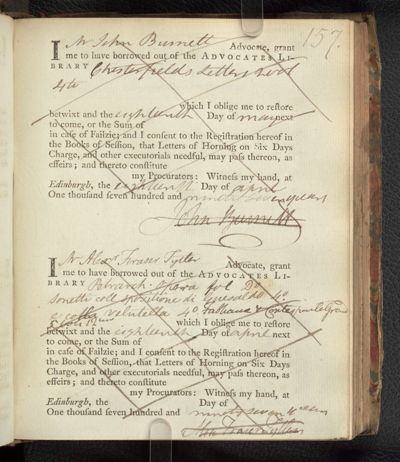 157.
I Mr John Burnett Advocate, grant
me to have borrowed out of the ADVOCATES LI-
BRARY Chesterfields Letters
4to
which I oblige me to restore
betwixt and the eighteenth Day of may next
to come, or the Sum of
in case of Failzie; and I consent to the Registration hereof in
the Books of Session, that Letters of Horning on Six Days
Charge, and other executorials needful, may pass thereon, as
effeirs; and thereto constitute
my Procurators: Witness my hand, at
Edinburgh, the eighteenth Day of april
One thousand seven hundred and ninety seven years
John Burnett
I Mr Alexr Fraser Tytler Advocate, grant
me to have borrowed out of the ADVOCATES LI-
BRARY Petrarch opera fol. Do
sonetti coll spositione di Gesualdo 4o.
Vellutello 4o
which I oblige me to restore
betwixt and the eighteenth Day of april next
to come, or the Sum of
in case of Failzie; and I consent to the Registration hereof in
the Books of Session, that Letters of Horning on Six Days
Charge, and other executorials needful, may pass thereon, as
effeirs; and thereto constitute
my Procurators: Witness my hand, at
Edinburgh, the Day of
One thousand seven hundred and ninety seven years
Alex Fraser Tytler